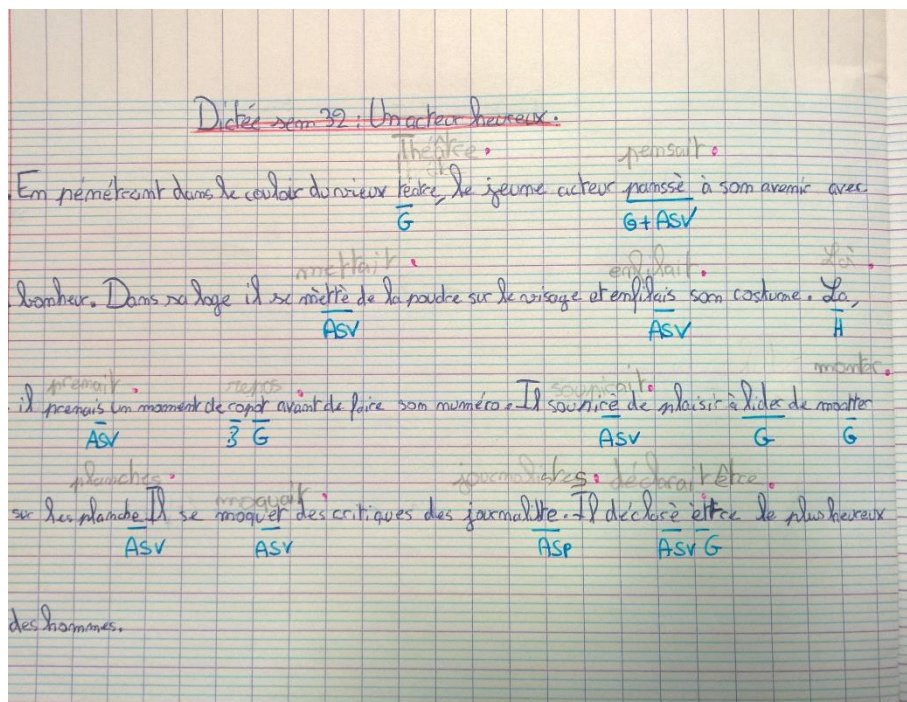 Dictée sem 32 : Un acteur heureux.
Théâtre. pensait.
En pénétrant dans le couloir du vieux téatre, le jeune acteur panssè à son avenir avec
G G+ASV
mettait. enfilait. Là.
bonheur. Dans sa loge il se mettè de la poudre sur le visage et enfilais son costume. La,
ASV ASV H
prenait. repos souriait. monter.
il prenais un moment de ropot avant de faire son numéro. Il sounicè de plaisir à lider de montter
ASV 3 G ASV G G
planches. moquait. journalistes. déclarait être.
sur les planche. Il se moquer des critiques des journaliste. Il déclarè ettre le plus heureux
ASV ASV ASP ASV G
des hommes.